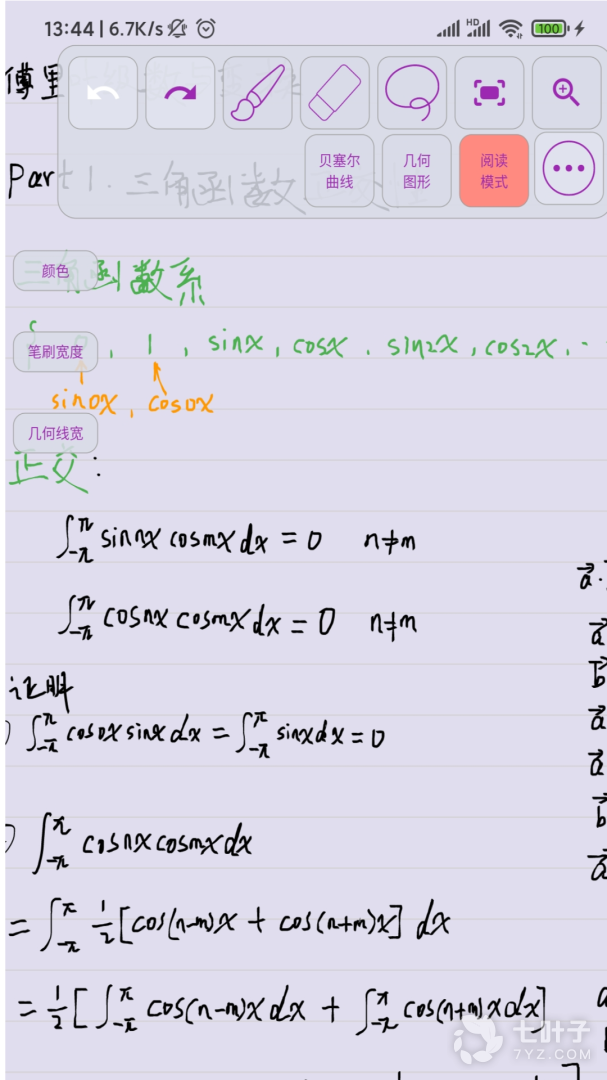 13:44 | 6.7K/s HD 100
傅里
贝塞尔曲线 几何图形 阅读模式
Part 1. 三角函数
颜色
三角函数系
笔刷宽度
{ 0, 1, sinx, cosx, sin2x, cos2x, ...
sin0x, cos0x
几何线宽
正交:
∫_{-π}^{π} sin nx cos mx dx = 0 n≠m
a⃗·
∫_{-π}^{π} cos nx cos mx dx = 0 n≠m
a⃗
b⃗
证明
a⃗
) ∫_{-π}^{π} cos0x sinx dx = ∫_{-π}^{π} sinx dx = 0
a⃗
b⃗
) ∫_{-π}^{π} cos nx cos mx dx
a⃗
= ∫_{-π}^{π} 1/2 [cos(n-m)x + cos(n+m)x] dx
= 1/2 [∫_{-π}^{π} cos(n-m)x dx + ∫_{-π}^{π} cos(n+m)x dx]
a
七叶子
7YZ.COM